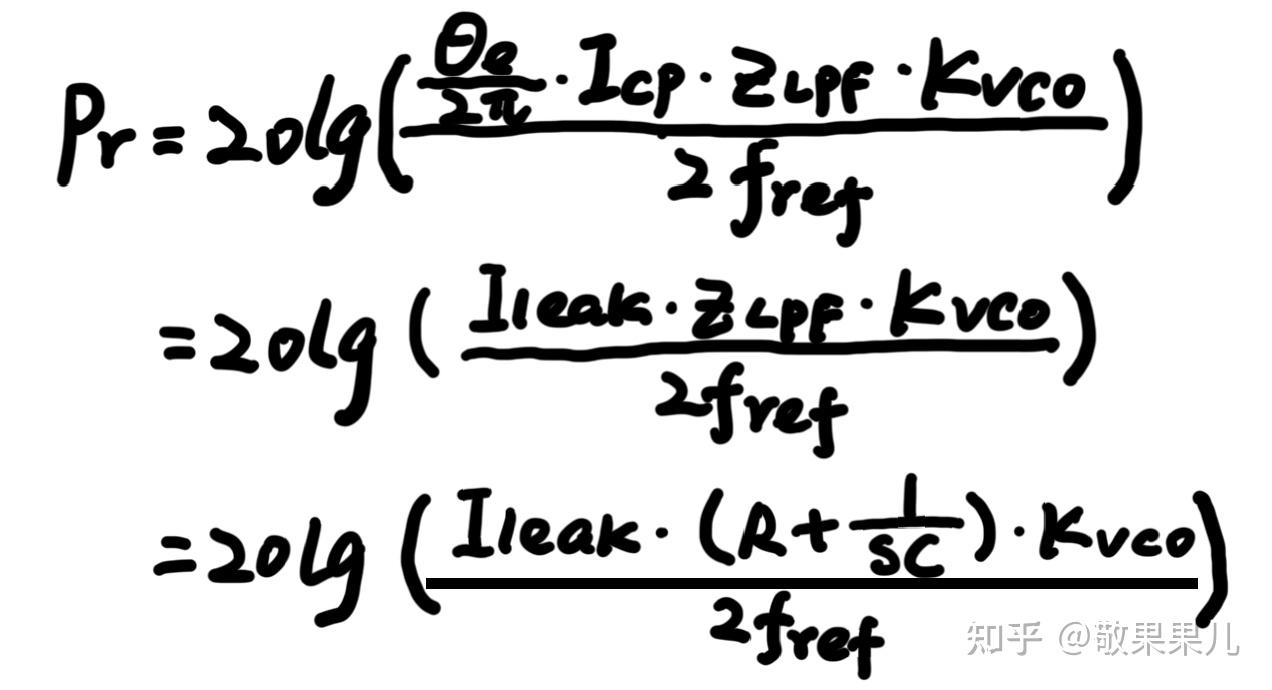 Pr = 20lg( (θe/2π · Icp · ZLPF · Kvco) / 2fref )
= 20lg ( (Ileak · ZLPF · Kvco) / 2fref )
= 20lg ( (Ileak · (R + 1/SC) · Kvco) / 2fref )
知乎 @敬果果儿